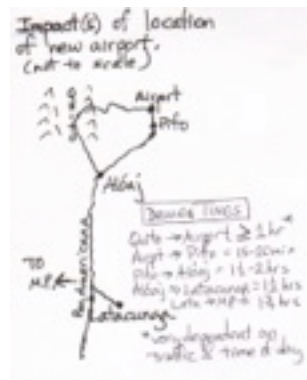 Impact(s) of location
of new airport.
(not to scale)
Airport
Pifo
Alóaj
TO
M.P.
PanAmericana
Latacunga
DRIVING TIMES
Quito → Airport ≥ 1 hr*
Airpt → Pifo = 15-20min
Pifo → Alóaj = 1½-2hrs
Alóaj → Latacunga = 1½ hrs
Lata → M.P.
*very dependent on
traffic & time of day